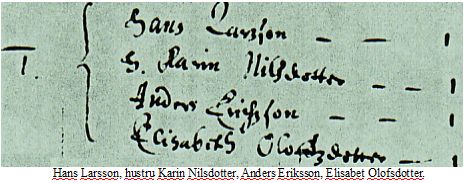 Hans Larsson — — 1
1. h. Karin Nilsdotter — — 1
Anders Erichsson — — 1
Elisabeth Olofzdotter — 1
Hans Larsson, hustru Karin Nilsdotter, Anders Eriksson, Elisabet Olofsdotter.